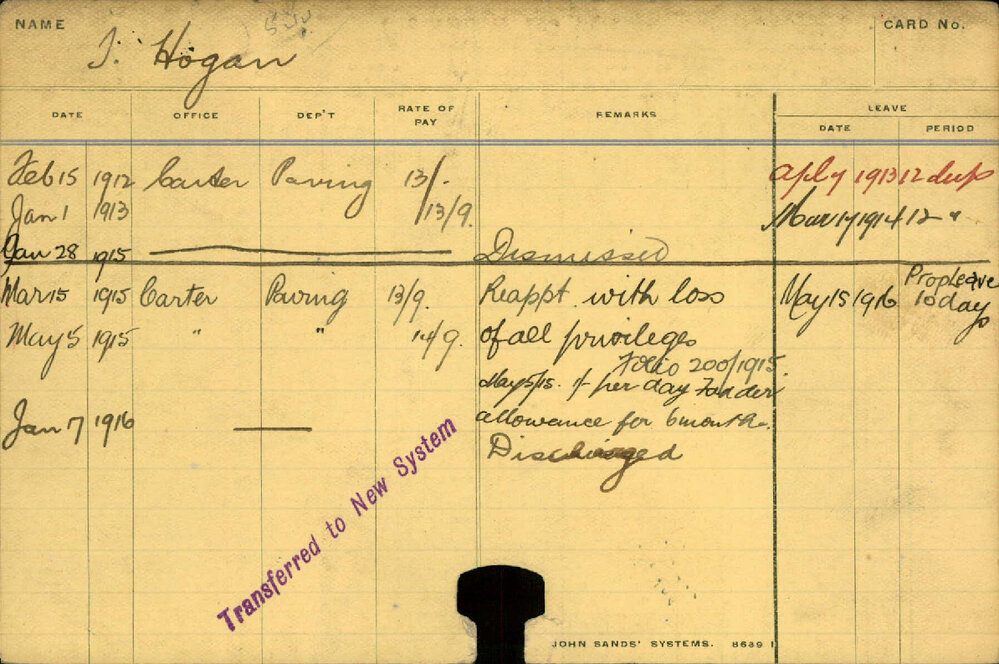 NAME
T. Hogan
CARD No.
DATE OFFICE DEP'T RATE OF PAY REMARKS LEAVE
DATE PERIOD
Feb 15 1912 Carter Paving 13/- Apl 7 1913 12 days
Jan 1 1913 13/9. Mar 17 1914 12 "
Jan 28 1915 Dismissed
Mar 15 1915 Carter Paving 13/9. Reappt with loss May 15 1916 Prop Leave 10 days
May 5 1915 " " 14/9. of all privileges
Folio 200/1915
May 5/15. 1/- per day Fodder
allowance for 6 months.
Jan 7 1916 Discharged
Transferred to New System
JOHN SANDS' SYSTEMS. 8689